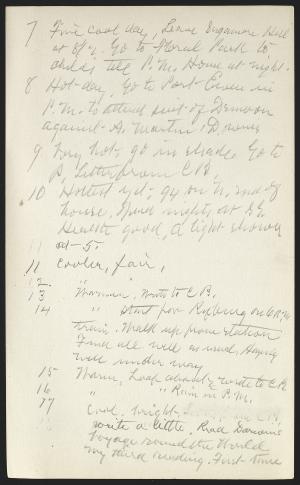 7 Fine cool day, Leave Sagamore Hill
at 8½. Go to Floral Park to
Childs till P.M. Home at night.
8 Hot day, go to Port Ewen in
P.M. to attend suit of Denison
against A. Martin. D.
9 Very hot, go in shade. Go to
P. Letter from C.B.
10 Hottest yet; 94 on N. end of
house. Spend nights at S.S.
Health good, a light shower
at 5.
11 cooler, fair,
12 "
13 " Warmer, Wrote to C.B.
14 " Start for Roxbury on 6 P.M.
train. Walk up from station
Find all well as usual, Haying
well under way
15 Warm, Loaf about & write to C.B.
16 " " Rain in P.M.
17 Cool, bright,
write a little. Read Darwin's
Voyage round the World
my third reading. First time